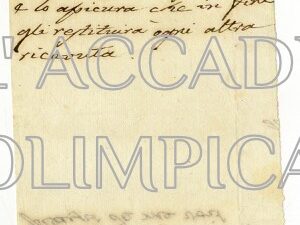 & lo assicura che in fine
gli restituirà ogni altra
ricevuta.
L'ACCADE
OLIMPICA